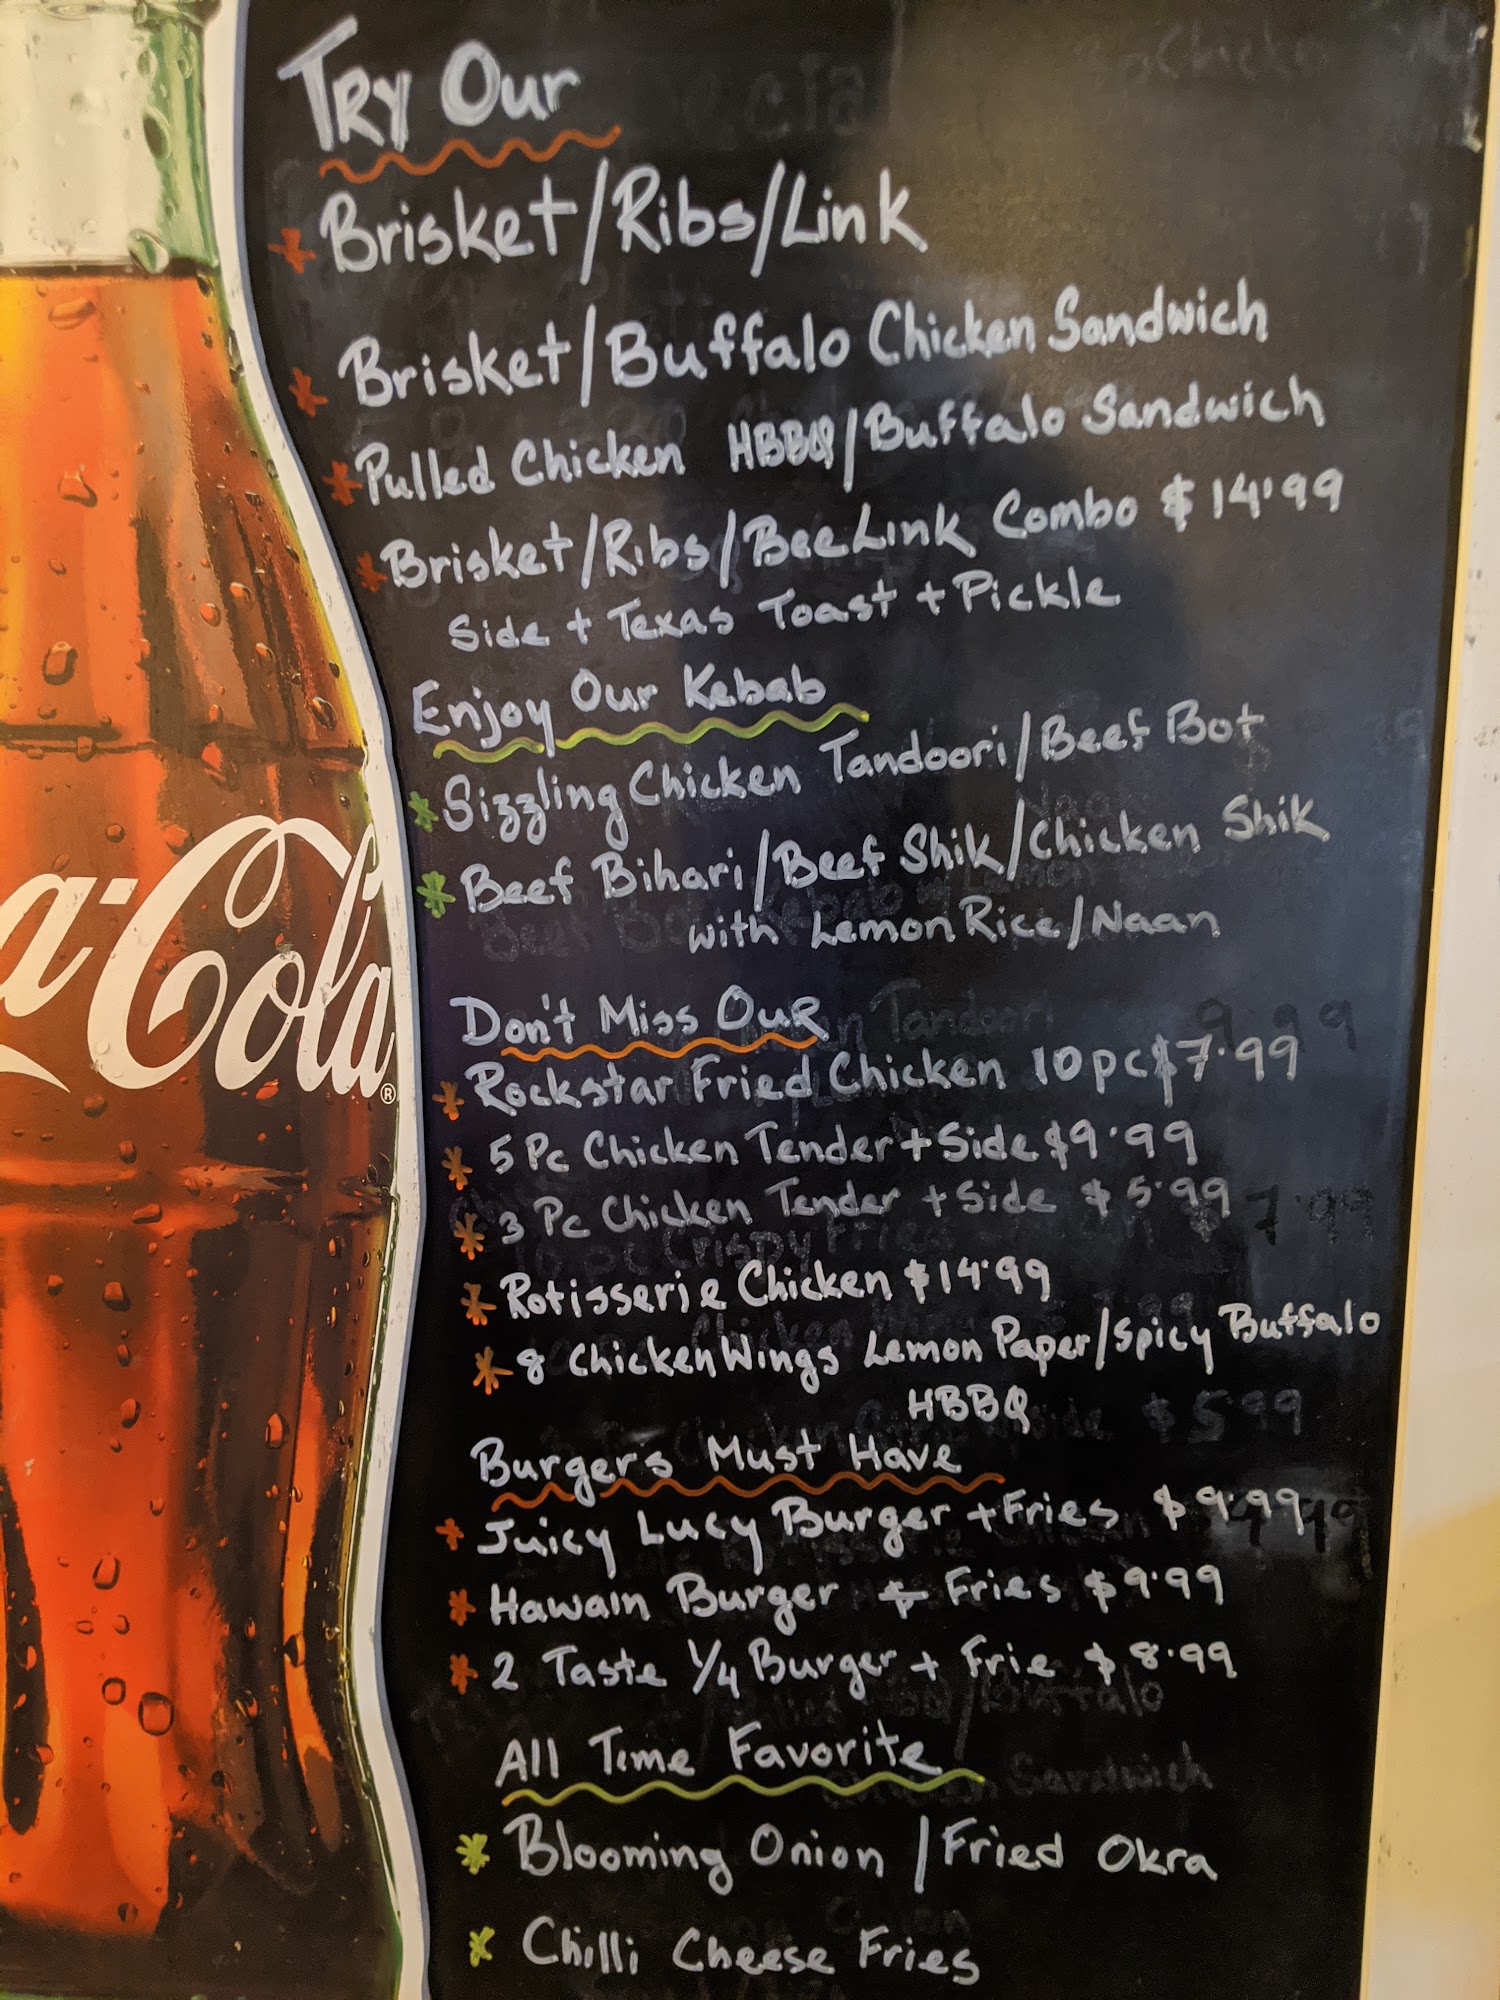 Try Our
Brisket/Ribs/Link
Brisket/Buffalo Chicken Sandwich
Pulled Chicken HBBQ/Buffalo Sandwich
Brisket/Ribs/BeeLink Combo $14.99
Side + Texas Toast + Pickle
Enjoy Our Kebab
Sizzling Chicken Tandoori/Beef Bot
Beef Bihari/Beef Shik/Chicken Shik
with Lemon Rice/Naan
Don't Miss Our
Rockstar Fried Chicken 10pc $7.99
5 Pc Chicken Tender + Side $9.99
3 Pc Chicken Tender + Side $5.99
Rotisserie Chicken $14.99
8 Chicken Wings Lemon Paper/Spicy Buffalo
HBBQ
Burgers Must Have
Juicy Lucy Burger + Fries $9.99
Hawain Burger + Fries $9.99
2 Taste 1/4 Burger + Frie $8.99
All Time Favorite
Blooming Onion / Fried Okra
Chilli Cheese Fries
a-Cola®